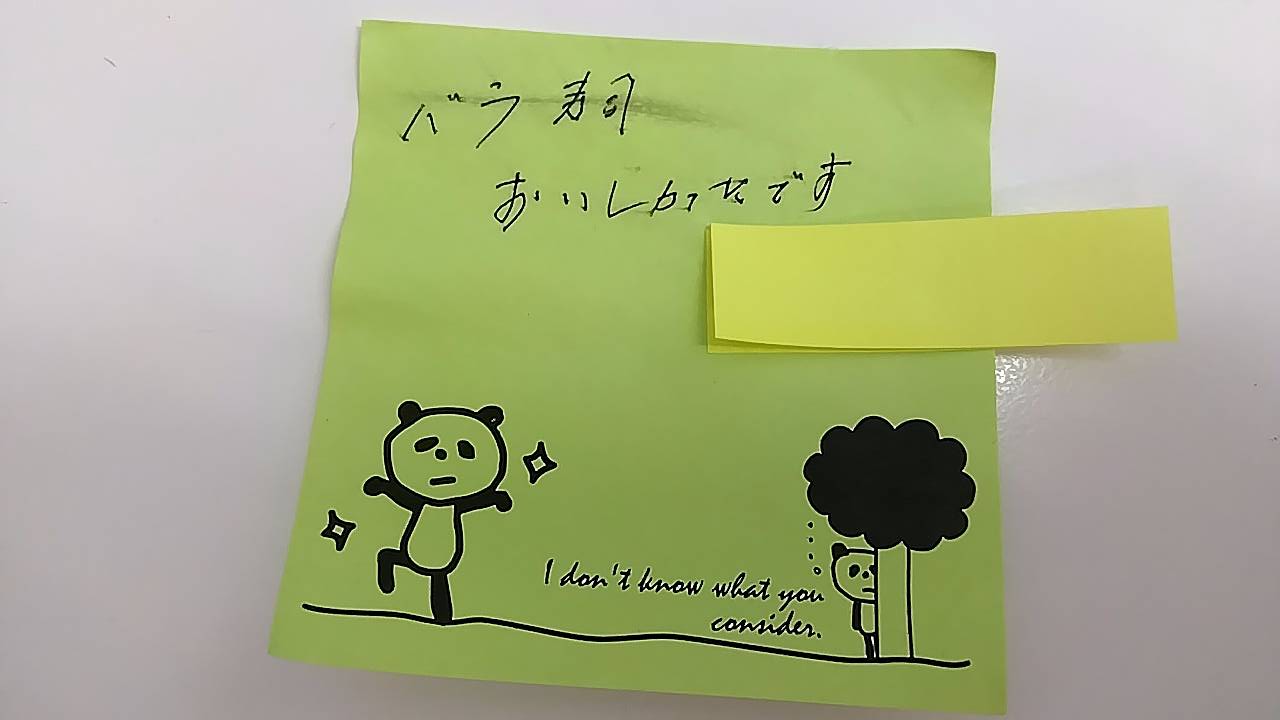 バラ寿司
おいしかったです
I don't know what you
consider.